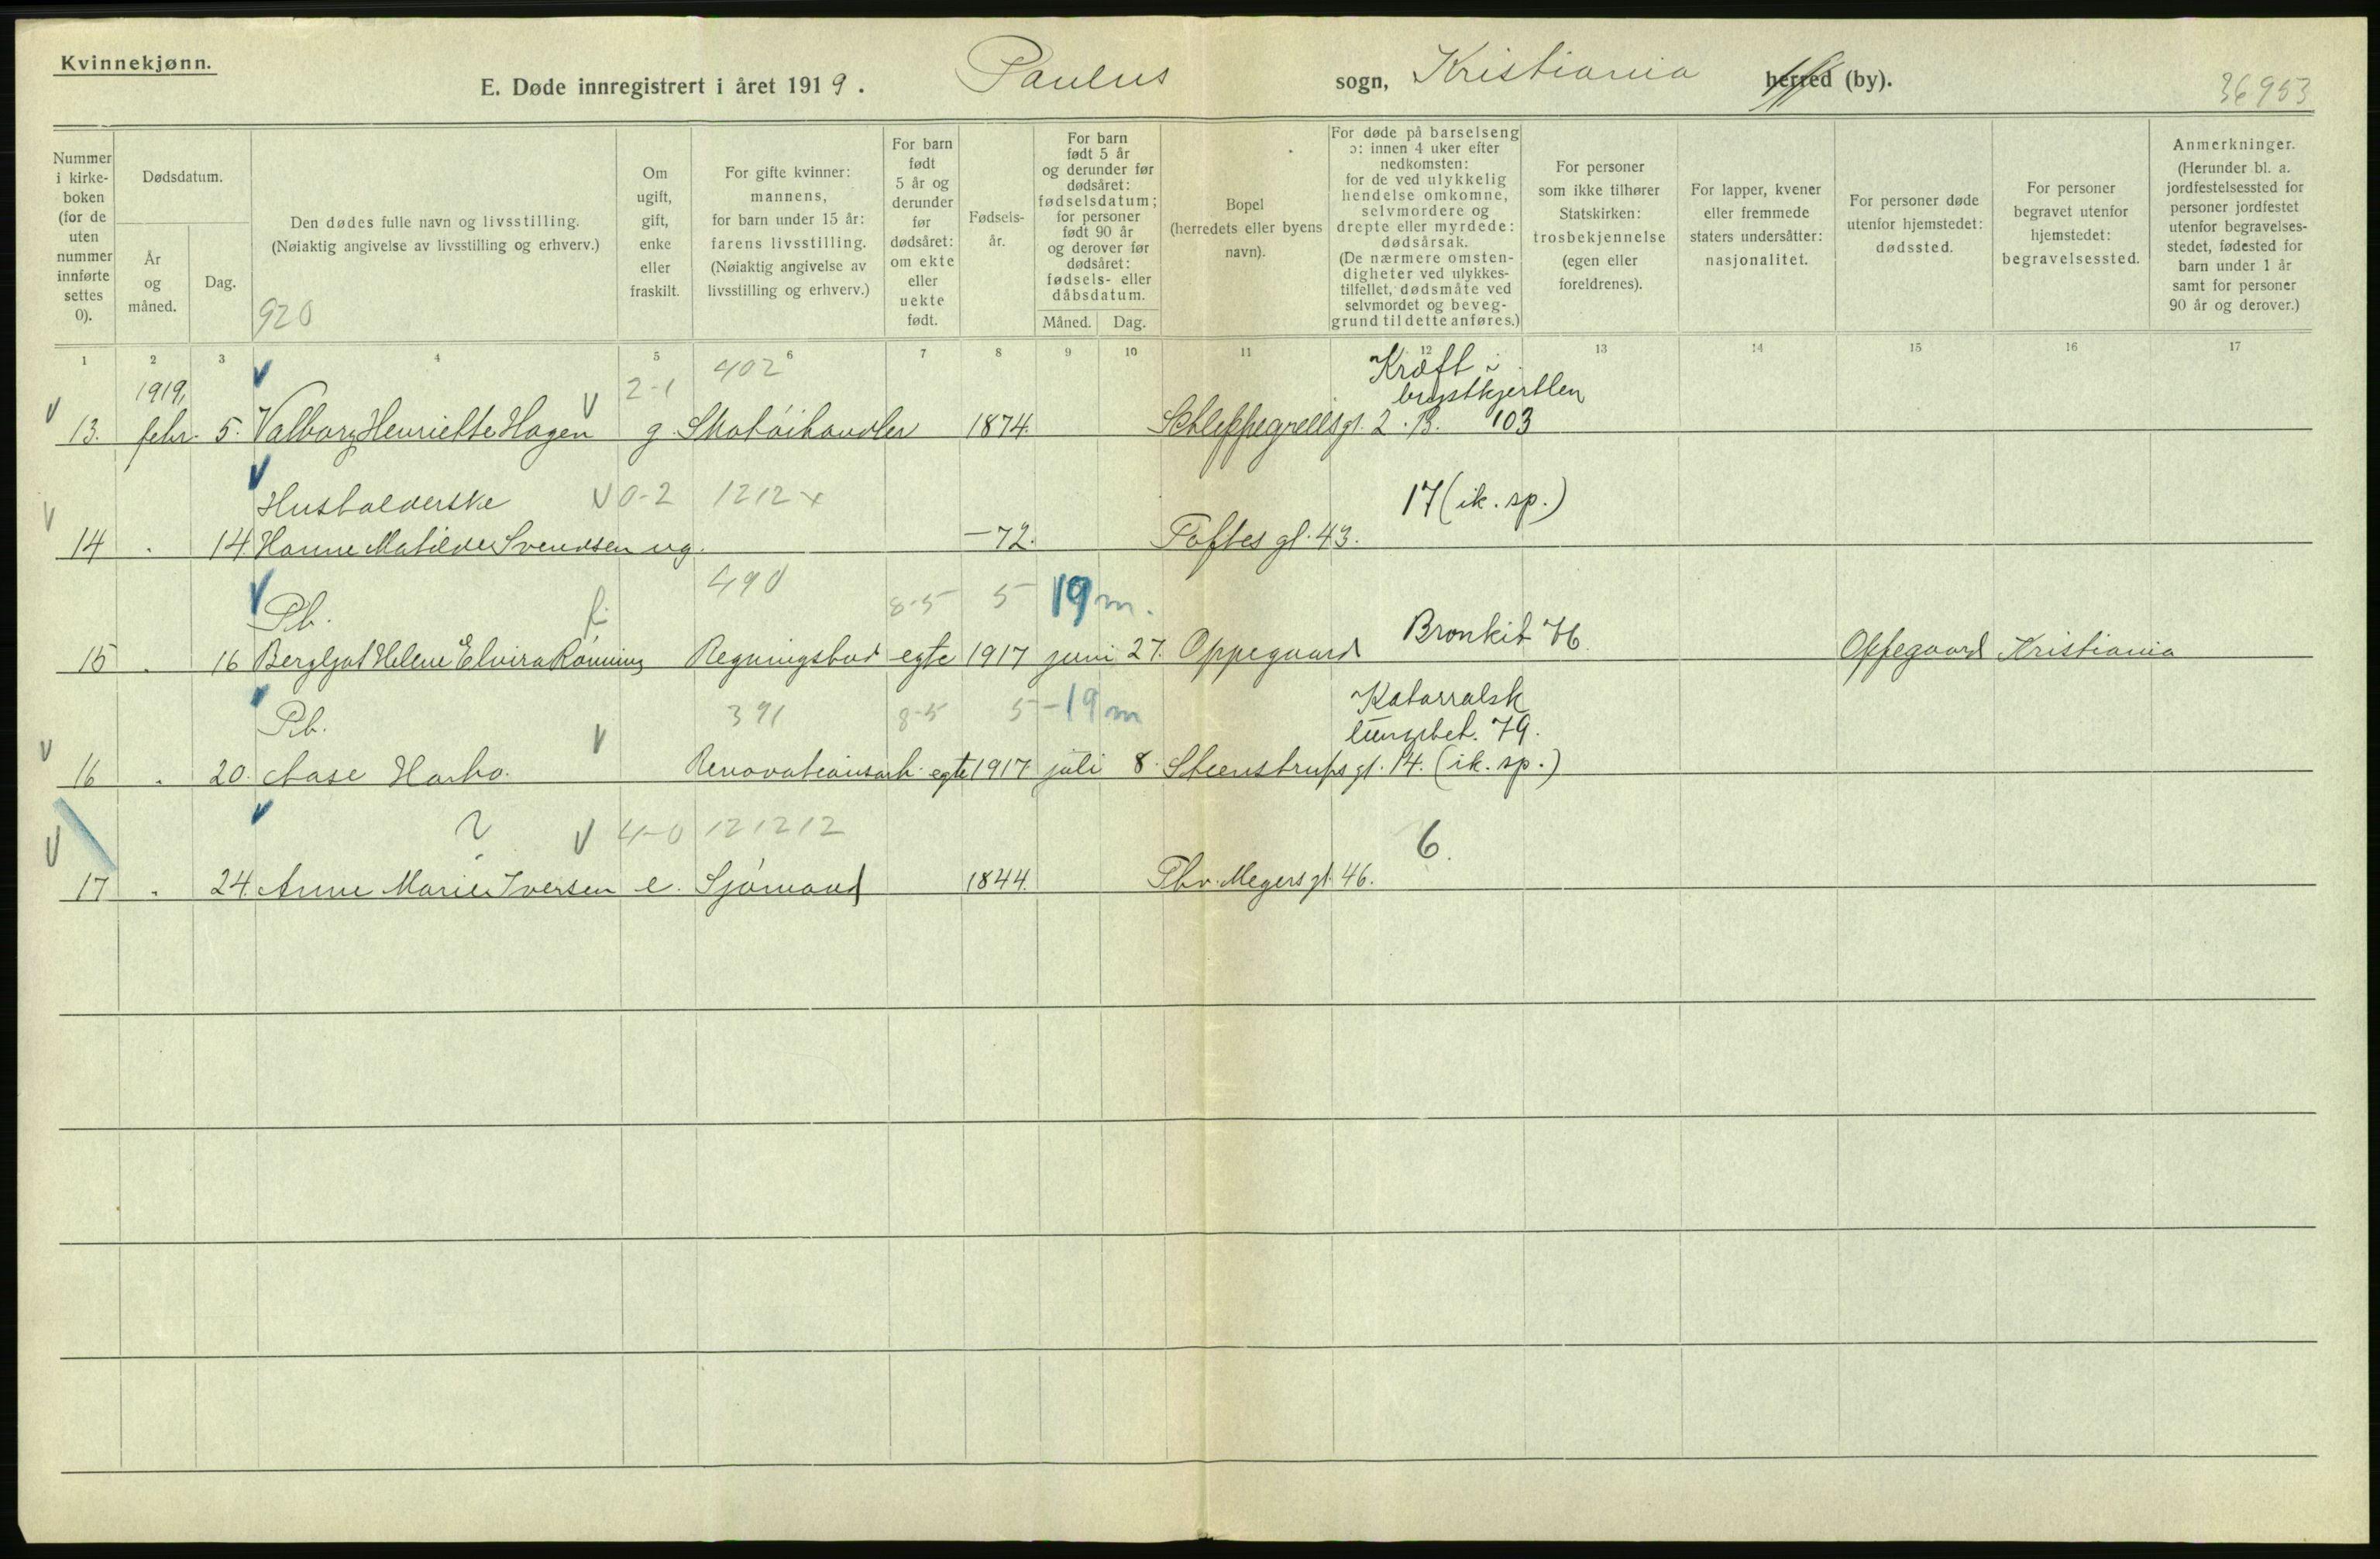 Kvinnekjønn.
E. Døde innregistrert i året 1919. Paulus sogn, Kristiania herred (by).
36953
Nummer i kirke-boken (for de uten nummer innførte settes 0).
Dødsdatum.
År og måned.
Dag.
Den dødes fulle navn og livsstilling.
(Nøiaktig angivelse av livsstilling og erhverv.)
920
Om ugift, gift, enke eller fraskilt.
For gifte kvinner: mannens, for barn under 15 år: farens livsstilling. (Nøiaktig angivelse av livsstilling og erhverv.)
For barn født 5 år og derunder før dødsåret: om ekte eller uekte født.
Fødsels-år.
For barn født 5 år og derunder før dødsåret: fødselsdatum; for personer født 90 år og derover før dødsåret: fødsels- eller dåbsdatum.
Måned. Dag.
Bopel (herredets eller byens navn).
For døde på barselseng ɔ: innen 4 uker efter nedkomsten: for de ved ulykkelig hendelse omkomne, selvmordere og drepte eller myrdede: dødsårsak. (De nærmere omsten-digheter ved ulykkes-tilfellet, dødsmåte ved selvmordet og beveg-grund til dette anføres.)
For personer som ikke tilhører Statskirken: trosbekjennelse (egen eller foreldrenes).
For lapper, kvener eller fremmede staters undersåtter: nasjonalitet.
For personer døde utenfor hjemstedet: dødssted.
For personer begravet utenfor hjemstedet: begravelsessted.
Anmerkninger. (Herunder bl. a. jordfestelsessted for personer jordfestet utenfor begravelses-stedet, fødested for barn under 1 år samt for personer 90 år og derover.)
1 2 3 4 5 6 7 8 9 10 11 12 13 14 15 16 17
1919, 2-1 402 Kræft i brystkjertlen
13. febr. 5. Valborg Henriette Hagen g. Skotøihandler 1874. Schleppegrellsgt. 2.B. 103
Husholderske 0-2 1212 x 17 (ik. sp.)
14 . 14 Hanne Matilde Svendsen ug. -72. Toftes gt. 43.
Pb. 490 8-5 5 19 m.
15 . 16 Bergljot Helene Elvira Rønning Regningsbud egte 1917 juni 27. Oppegaard Bronkit 76. Oppegaard Kristiania
Pb. 391 8-5 5 -19 m Katarralsk lungebet. 79.
16 . 20. Aase Harbo. Renovationsarb. egte 1917 juli 8. Steenstrups gt. 14. (ik. sp.)
4-0 121212 6.
17 . 24. Anne Marie Iversen e. Sjømand 1844. Thv. Meyers gt. 46.